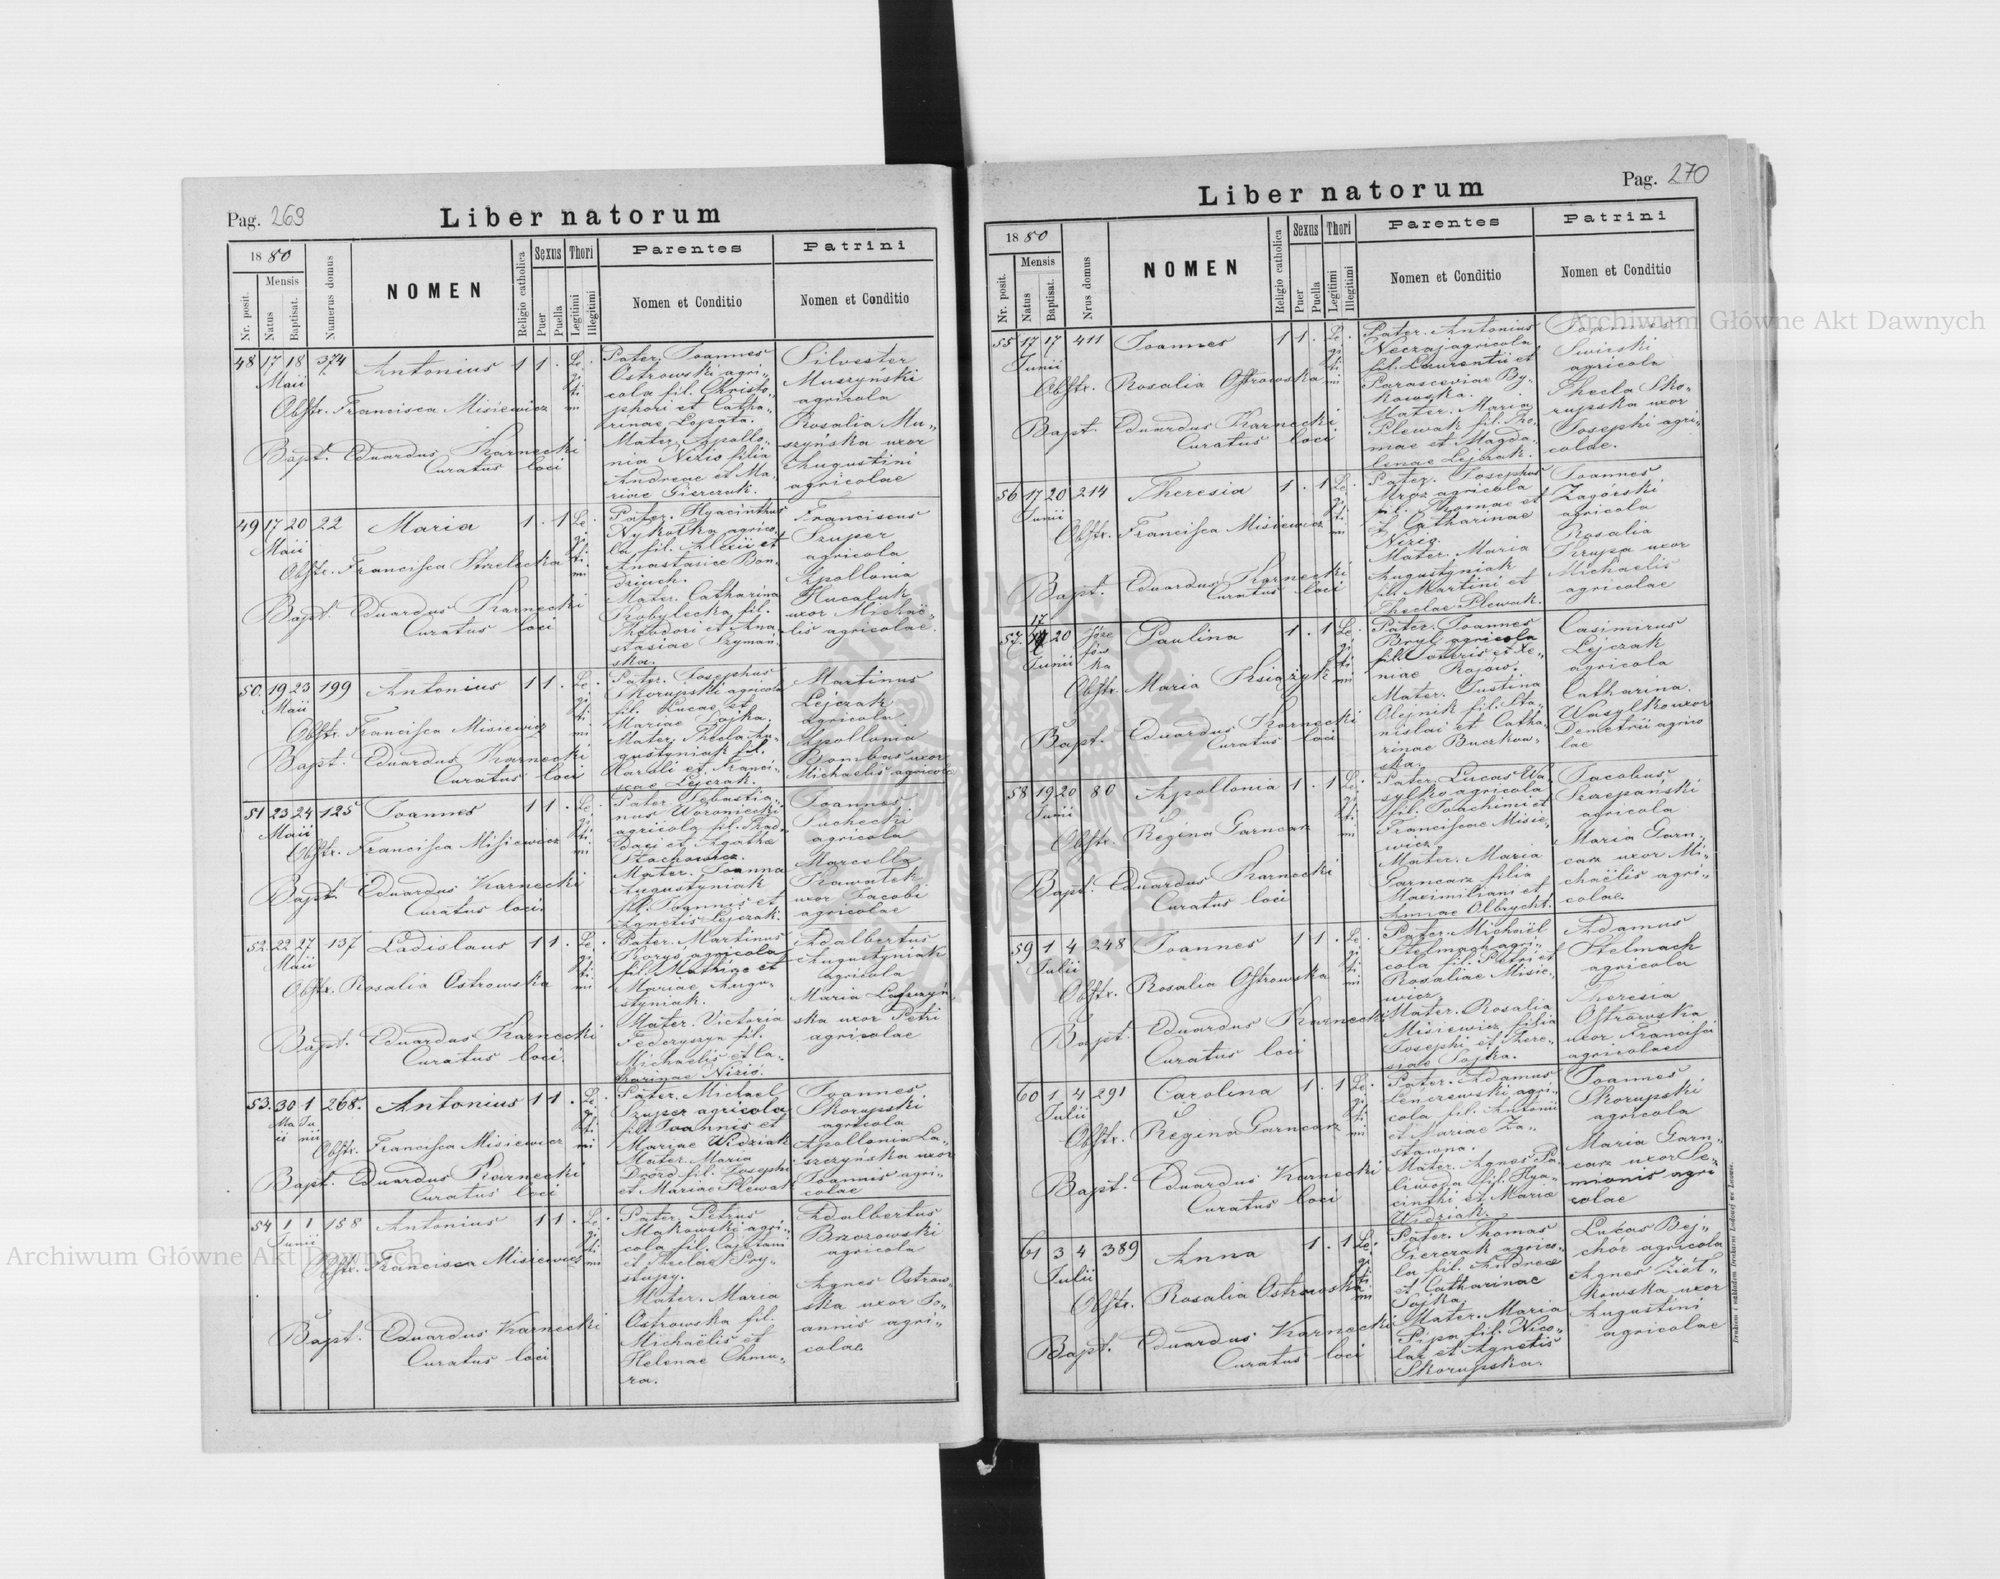 Pag. 269
Liber natorum
1880
Nr. posit.
Mensis
Natus
Baptisat.
Numerus domus
NOMEN
Religio catholica
Sexus
Puer
Puella
Thori
Legitimi
Illegitimi
Parentes
Nomen et Conditio
Patrini
Nomen et Conditio
48 17 18 374 Antonius 1 1 .
Maii
Obstr. Francisca Misiewicz
Bapt. Eduardus Karnecki
Curatus loci
Le-
gi-
ti-
mi
Pater. Joannes
Ostrowski agri-
cola fil. Christo-
phori et Catha-
rinae Lopata.
Mater. Apollo-
nia Nizio filia
Andreae et Ma-
riae Gierczak.
Silvester
Muszyński
agricola
Rosalia Mu-
szyńska uxor
Augustini
agricolae
49 17 20 22 Maria 1 . 1
Maii
Obstr. Francisca Strzelecka
Bapt. Eduardus Karnecki
Curatus loci
Le-
gi-
ti-
mi
Pater. Hyacinthus
Nykolka agrico-
la, fil. Alexii et
Anastasiae Bon-
dziuch.
Mater. Catharina
Kobylecka, fil.
Theodori et Ana-
stasiae Szyman-
ska.
Franciscus
Szuper
agricola
Apollonia
Hucaluk
uxor Michaë-
lis agricolae.
50. 19 23 199 Antonius 1 1 .
Maii
Obstr. Francisca Misiewicz
Bapt. Eduardus Karnecki
Curatus loci
Le-
gi-
ti-
mi
Pater. Josephus
Skorupski agricola
fil. Lucae et
Mariae Sojka.
Mater. Thecla Au-
gustyniak fil.
Karoli et Franci-
scae Lejczak.
Martinus
Lejczak
agricola
Apollonia
Bombas uxor
Michaelis agricolae
51 23 24 125 Joannes 1 1 .
Maii
Obstr. Francisca Misiewicz
Bapt. Eduardus Karnecki
Curatus loci.
Le-
gi-
ti-
mi
Pater Sebastia-
nus Woroniecki
agricola fil. Thad-
daei et Agatha
Stachowicz.
Mater. Joanna
Augustyniak
fil. Joannis et
Agnetis Lejczak.
Joannes
Suchecki
agricola
Marcella
Kawałek
uxor Jacobi
agricolae
52. 22 27 137 Ladislaus 1 1 .
Maii
Obstr. Rosalia Ostrowska
Bapt. Eduardus Karnecki
Curatus loci.
Le-
gi-
ti-
mi
Pater. Martinus
Korys agricola
fil. Mathiae et
Mariae Augu-
styniak.
Mater. Victoria
Federyszyn fil.
Michaelis et Ca-
tharinae Nizio.
Adalbertus
Augustyniak
agricola
Maria
ska uxor Petri
agricolae
53. 30 1 268. Antonius 1 1 .
Ma- Ju-
ii nii
Obstr. Francisca Misiewicz
Bapt. Eduardus Karnecki
Curatus loci
Le-
gi-
ti-
mi
Pater. Michael
Szuper agricola
fil. Joannis et
Mariae Widziak
Mater. Maria
Drozd fil. Josephi
et Mariae Plewak
Joannes
Skorupski
agricola
Apollonia La-
szczyńska uxor
Joannis agri-
colae
54 1 1 158 Antonius 1 1 .
Junii
Obstr. Francisca Misiewicz
Bapt. Eduardus Karnecki
Curatus loci
Le-
gi-
ti-
mi
Pater. Petrus
Makowski agri-
cola fil. Cajetani
et Theclae Pry-
stupy.
Mater. Maria
Ostrowska fil.
Michaëlis et
Helenae Chmu-
ra.
Adalbertus
Brzozowski
agricola
Agnes Ostrow-
ska uxor Jo-
annis agri-
colae.
Pag. 270
Liber natorum
1880
Nr. posit.
Mensis
Natus
Baptisat.
Nrus domus
NOMEN
Religio catholica
Sexus
Puer
Puella
Thori
Legitimi
Illegitimi
Parentes
Nomen et Conditio
Patrini
Nomen et Conditio
55 17 17 411 Joannes 1 1 .
Junii
Obstr. Rosalia Ostrowska
Bapt. Eduardus Karnecki
Curatus loci
Le-
gi-
ti-
mi
Pater. Antonius
Neczaj agricola
fil. Laurentii et
Parasceviae By-
kowska.
Mater. Maria
Plewak fil. Tho-
mae et Magda-
lenae Lejczak.
Joannes
Swirski
agricola
Thecla Sko-
rupska uxor
Josephi agri-
colae.
56 17 20 214 Theresia 1 . 1
Junii
Obstr. Francisca Misiewicz
Bapt. Eduardus Karnecki
Curatus loci
Le-
gi-
ti-
mi
Pater. Josephus
Mroz agricola
fil. Thomae et
Catharinae
Nizio.
Mater. Maria
Augustyniak
fil. Martini et
Theclae Plewak.
Joannes
Zagórski
agricola
Rosalia
Krupa uxor
Michaelis
agricolae
57. 17 20 Józe- Paulina 1 . 1
Junii fów-
ka
Obstr. Maria Książyk
Bapt. Eduardus Karnecki
Curatus loci
Le-
gi-
ti-
mi
Pater. Joannes
Bryl agricola
et Xe-
niae Rajów.
Mater. Justina
Olejnik fil. Sta-
nislai et Catha-
rinae Buczkow-
ska.
Casimirus
Lejczak
agricola
Catharina
Wasylko uxor
Demetrii agrico-
lae
58 19 20 80 Apollonia 1 . 1
Junii
Obstr. Regina Garncarz
Bapt. Eduardus Karnecki
Curatus loci
Le-
gi-
ti-
mi
Pater. Lucas Wa-
sylko agricola
fil. Joachimi et
Franciscae Misie-
wicz
Mater. Maria
Garncarz filia
Maximiliani et
Annae Olbrycht.
Jacobus
Szczepański
agricola
Maria Garn-
carz uxor Mi-
chaëlis agri-
colae.
59 1 4 248 Joannes 1 1 .
Julii
Obstr. Rosalia Ostrowska
Bapt. Eduardus Karnecki
Curatus loci
Le-
gi-
ti-
mi
Pater. Michaël
Stelmach agri-
cola fil. Petri et
Rosaliae Misie-
wicz
Mater. Rosalia
Misiewicz filia
Josephi et There-
siae Sojka.
Adamus
Stelmach
agricola
Theresia
Ostrowska
uxor Francisci
agricolae
60 1 4 291 Carolina 1 . 1
Julii
Obstr. Regina Garncarz
Bapt. Eduardus Karnecki
Curatus loci
Le-
gi-
ti-
mi
Pater. Adamus
Lenczewski agri-
cola fil. Antonii
et Mariae Za-
stawna.
Mater. Agnes Pa-
liwoda fil. Hya-
cinthi et Mariae
Widziak.
Joannes
Skorupski
agricola
Maria Garn-
carz uxor Si-
meonis agri-
colae
61 3 4 389 Anna 1 . 1
Julii
Obstr. Rosalia Ostrowska
Bapt. Eduardus Karnecki
Curatus loci
Le-
gi-
ti-
mi
Pater. Thomas
Gierczak agrico-
la fil. Andreae
et Catharinae
Sojka.
Mater. Maria
Pipa fil. Nico-
lai et Agnetis
Skorupska.
Lucas Bej-
chór agricola
Agnes Ziół-
kowska uxor
Augustini
agricolae
Archiwum Główne Akt Dawnych
Archiwum Główne Akt Dawnych